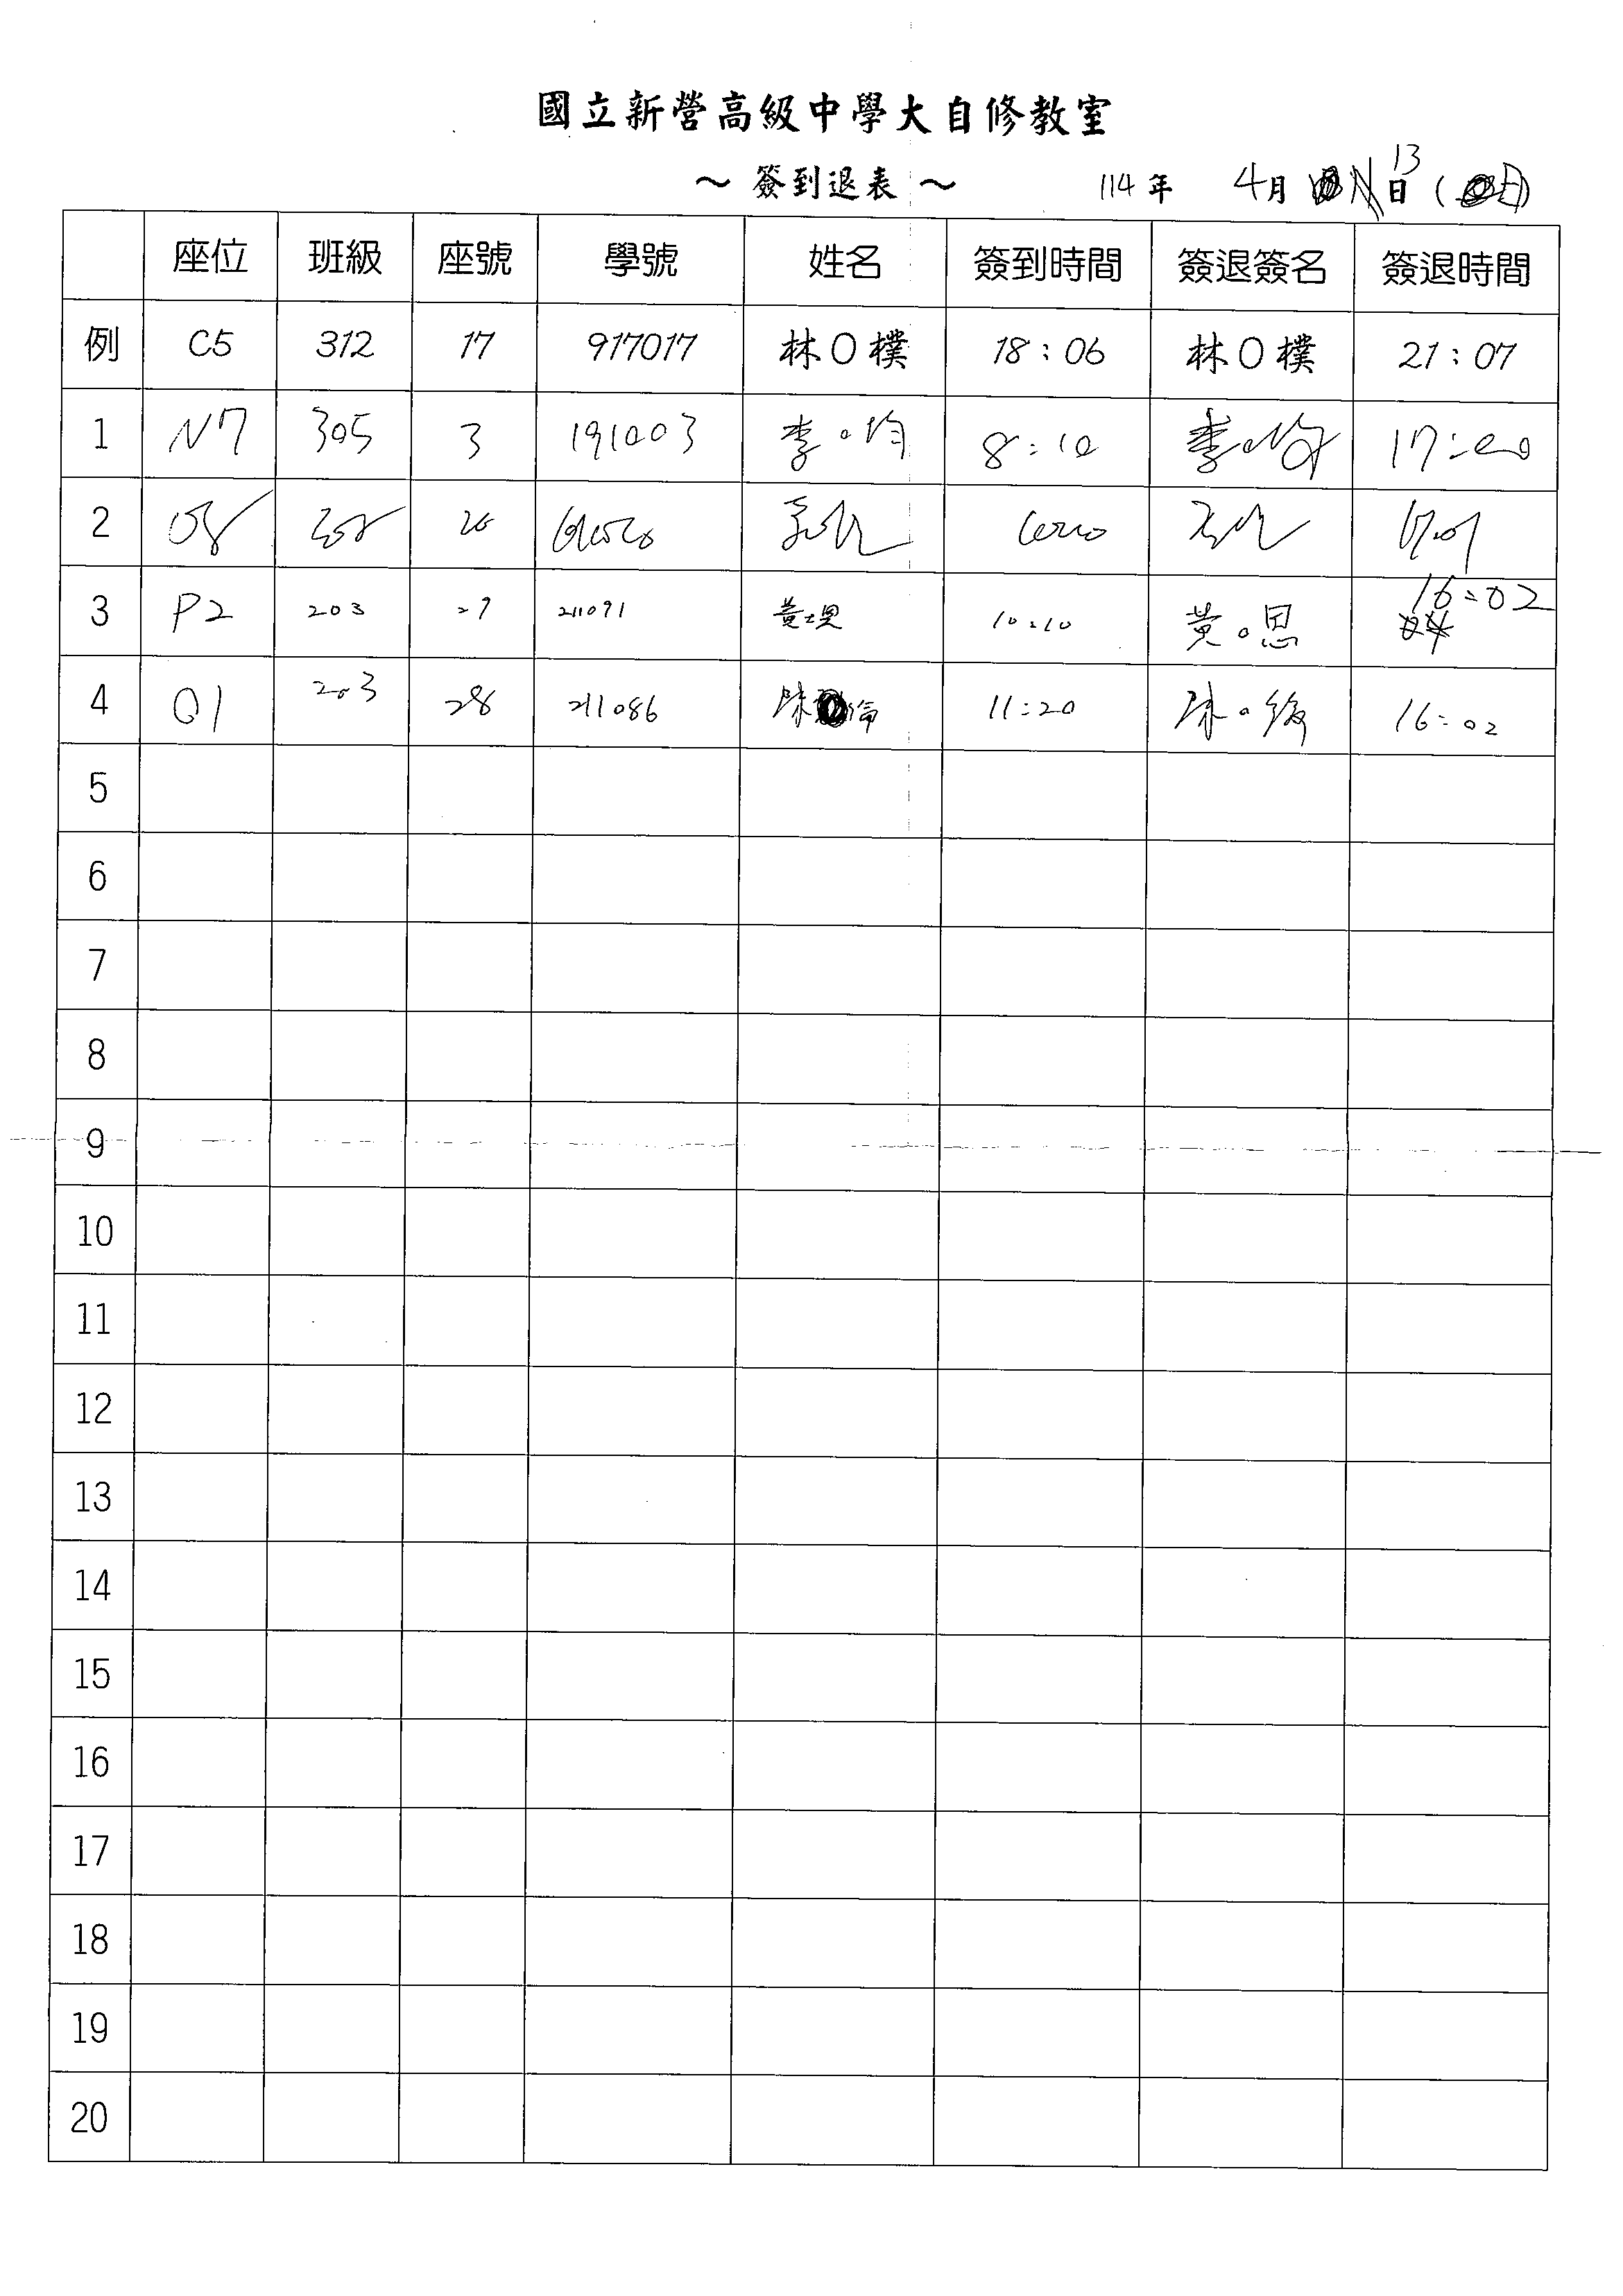 國立新營高級中學大自修教室
～ 簽到退表 ～ 114 年 4月 13 日 (日)
座位 班級 座號 學號 姓名 簽到時間 簽退簽名 簽退時間
例 C5 312 17 917017 林O樸 18:06 林O樸 21:07
1 N7 305 3 191003 李○均 8:10 李○均 17:00
2
3 P2 203 29 211091 黃 恩 10:10 黃○恩 16:02
4 Q1 203 28 211086 陳 倫 11:20 陳○ 16:02
5
6
7
8
9
10
11
12
13
14
15
16
17
18
19
20